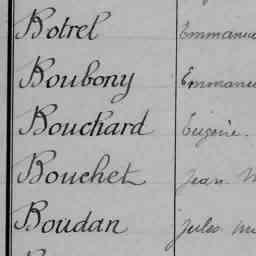 Botrel Emmanue
Boubony Emmanue
Bouchard Eugène.
Bouchet Jean M
Boudan Jules